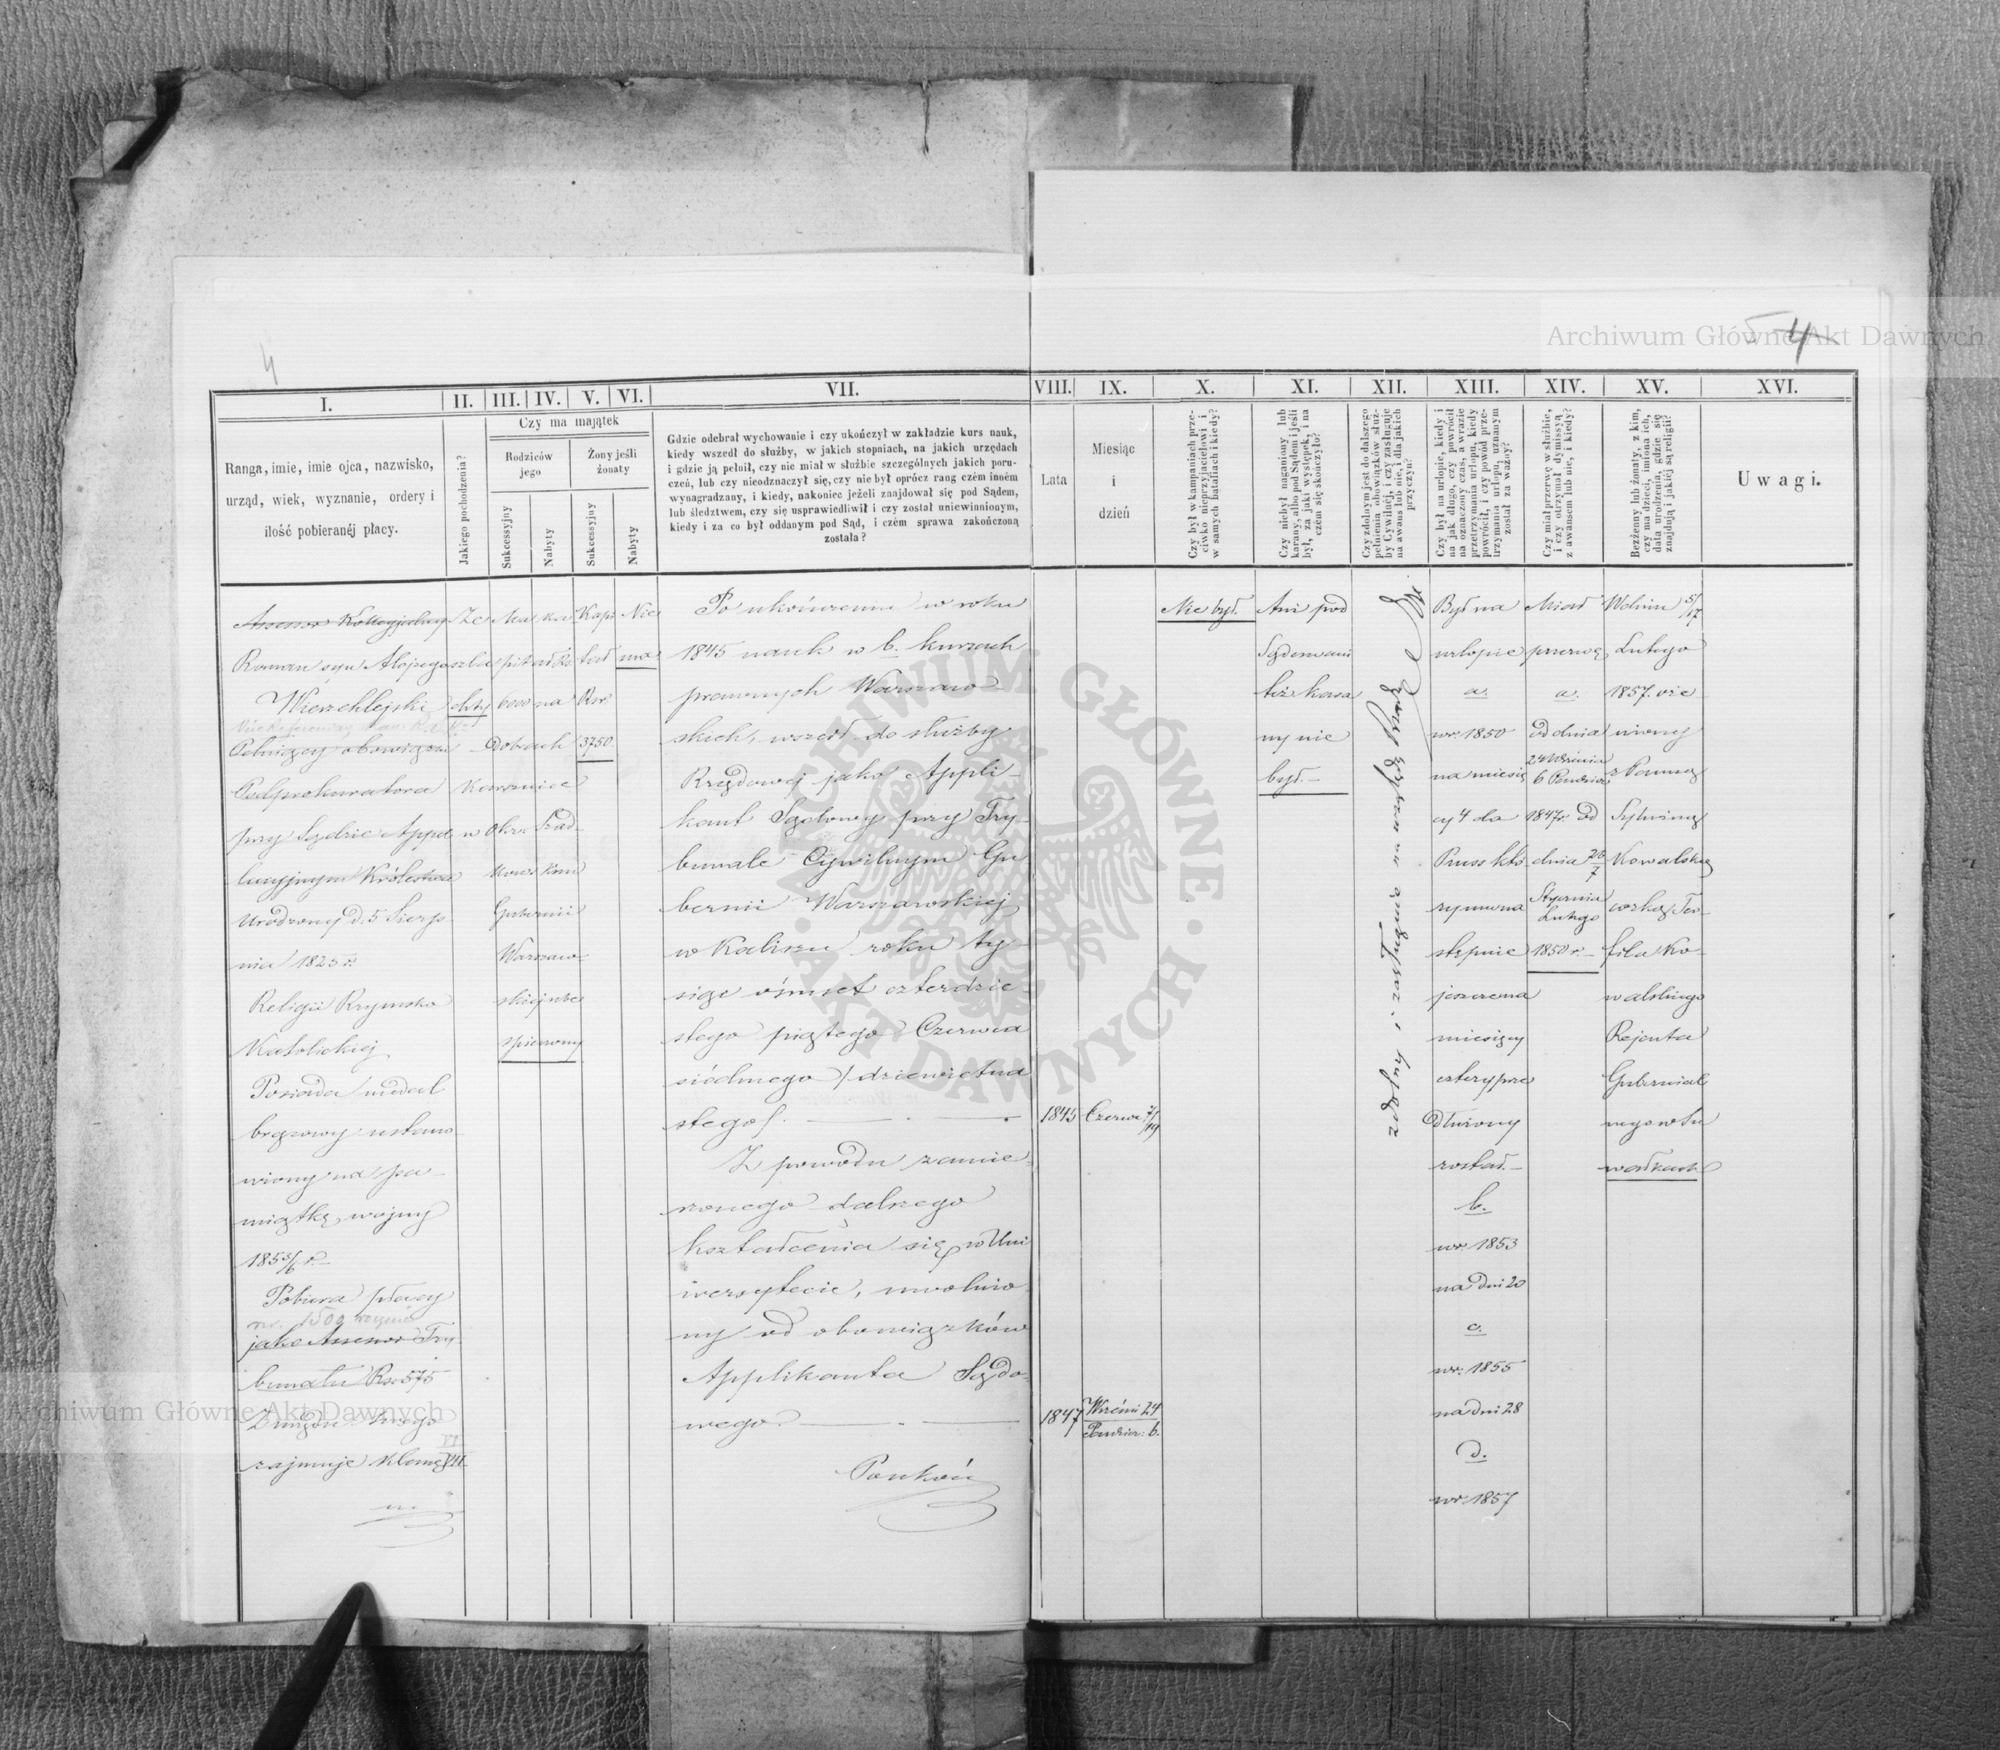 4
5 4
Archiwum Główne Akt Dawnych
I.
II.
III.
IV.
V.
VI.
VII.
VIII.
IX.
X.
XI.
XII.
XIII.
XIV.
XV.
XVI.
Ranga, imie, imie ojca, nazwisko,
urząd, wiek, wyznanie, ordery i
ilość pobieranéj płacy.
Jakiego pochodzenia?
Czy ma majątek
Rodziców
jego
Żony jeśli
żonaty
Sukcessyjny
Nabyty
Sukcessyjny
Nabyty
Gdzie odebrał wychowanie i czy ukończył w zakładzie kurs nauk,
kiedy wszedł do służby, w jakich stopniach, na jakich urzędach
i gdzie ją pełnił, czy nie miał w służbie szczególnych jakich poru-
czeń, lub czy nieodznaczył się, czy nie był oprócz rang czém inném
wynagradzany, i kiedy, nakoniec jeżeli znajdował się pod Sądem,
lub śledztwem, czy się usprawiedliwił i czy został uniewianionym,
kiedy i za co był oddanym pod Sąd, i czém sprawa zakończoną
została?
Lata
Miesiąc
i
dzień
Czy był w kampaniach prze-
ciwko nieprzyjacielowi i
w samych batalliach i kiedy?
Czy niebył naganiony lub
karany, albo pod Sądem i jeśli
był, za jaki występek, i na
czém się skończyło?
Czy zdolnym jest do dalszego
pełnienia obowiązków służ-
by Cywilnéj, i czy zasługuje
na awans lub nie, i dla jakich
przyczyn?
Czy był na urlopie, kiedy i
na jak długo, czy powrócił
na oznaczony czas, a wrazie
przetrzymania urlopu, kiedy
powrócił, i czy powód prze-
trzymania urlopu, uznanym
został za ważny?
Czy miał przerwę w służbie,
i czy otrzymał dymissyą
z awansem lub nie, i kiedy?
Bezżenny lub żonaty, z kim,
czy ma dzieci, imiona ich,
data urodzenia, gdzie się
znajdują i jakiéj są religii?
Uwagi.
Assessor Kollegjalny
Roman syn Alojzego
Wierzchlejski
Pełniący obowiązki
Podprokuratora
przy Sądzie Appel
lacyjnym Królestwa
Urodzony d. 5 Sierp
nia 1825 r.
Religii Rzymsko
Katolickiej
Posiada medal
brązowy ustano
wiony na pa
miątkę wojny
1853/6 r.
Pobiera płacy
rs. 1500 rocznie
jako Assessor Try
bunału Rsr 575
Z urzędu swego
zajmuje klassę VII
VI
Ze
szla
chty
Ma ka
pitał Zł
6000 na
Dobrach
Karsznice
w Okr. Szad
kows kim
Gubernii
Warszaw
skiej ube
spieczony
Kapi
tał
Rsr.
3750
Nie
ma
Po ukończeniu w roku
1845 nauk w b. kursach
prawnych Warszaw
skich, wszedł do służby
Rządowej jako Appli-
kant Sądowy przy Try-
bunale Cywilnym Gu
bernii Warszawskiej
w Kaliszu roku ty-
siąc ośmset czterdzie
stego piątego Czerwca
siódmego /dziewiętna
stego/.
1845 Czerwca 7/19
Z powodu zamie
rzonego dalszego
kształcenia się w Uni
wersytecie, uwolnio
ny od obowiązków
Applikanta Sądo-
wego
1847 Wrześni 24
Paździer: 6.
Nie był.
Ani pod
Sądem ani
też kara
ny nie
był.
Zdolny i zasługuje na awans
Był na
urlopie
a.
w r. 1850
na miesię
cy 4 do
Pruss któ
ry mu na
stępnie
jeszcze na
miesięcy
cztery prze
dłużony
został.
b.
w r. 1853
na dni 20
c.
w r. 1855
na dni 28
d.
w r. 1857
Miał
przerwę
a.
od dnia
24 Września
6 Paździer
1847 r. do
dnia 26/7
Stycznia
Lutego
1850 r.
W dniu 5/17
Lutego
1857. oże
niony
z Panną
Sylwiną
Kowalską
córką Teo-
fila Ko-
walskiego
Rejenta
Gubernial
nego w Su
wałkach
ARCHIWUM GŁÓWNE · AKT DAWNYCH ·
Archiwum Główne Akt Dawnych